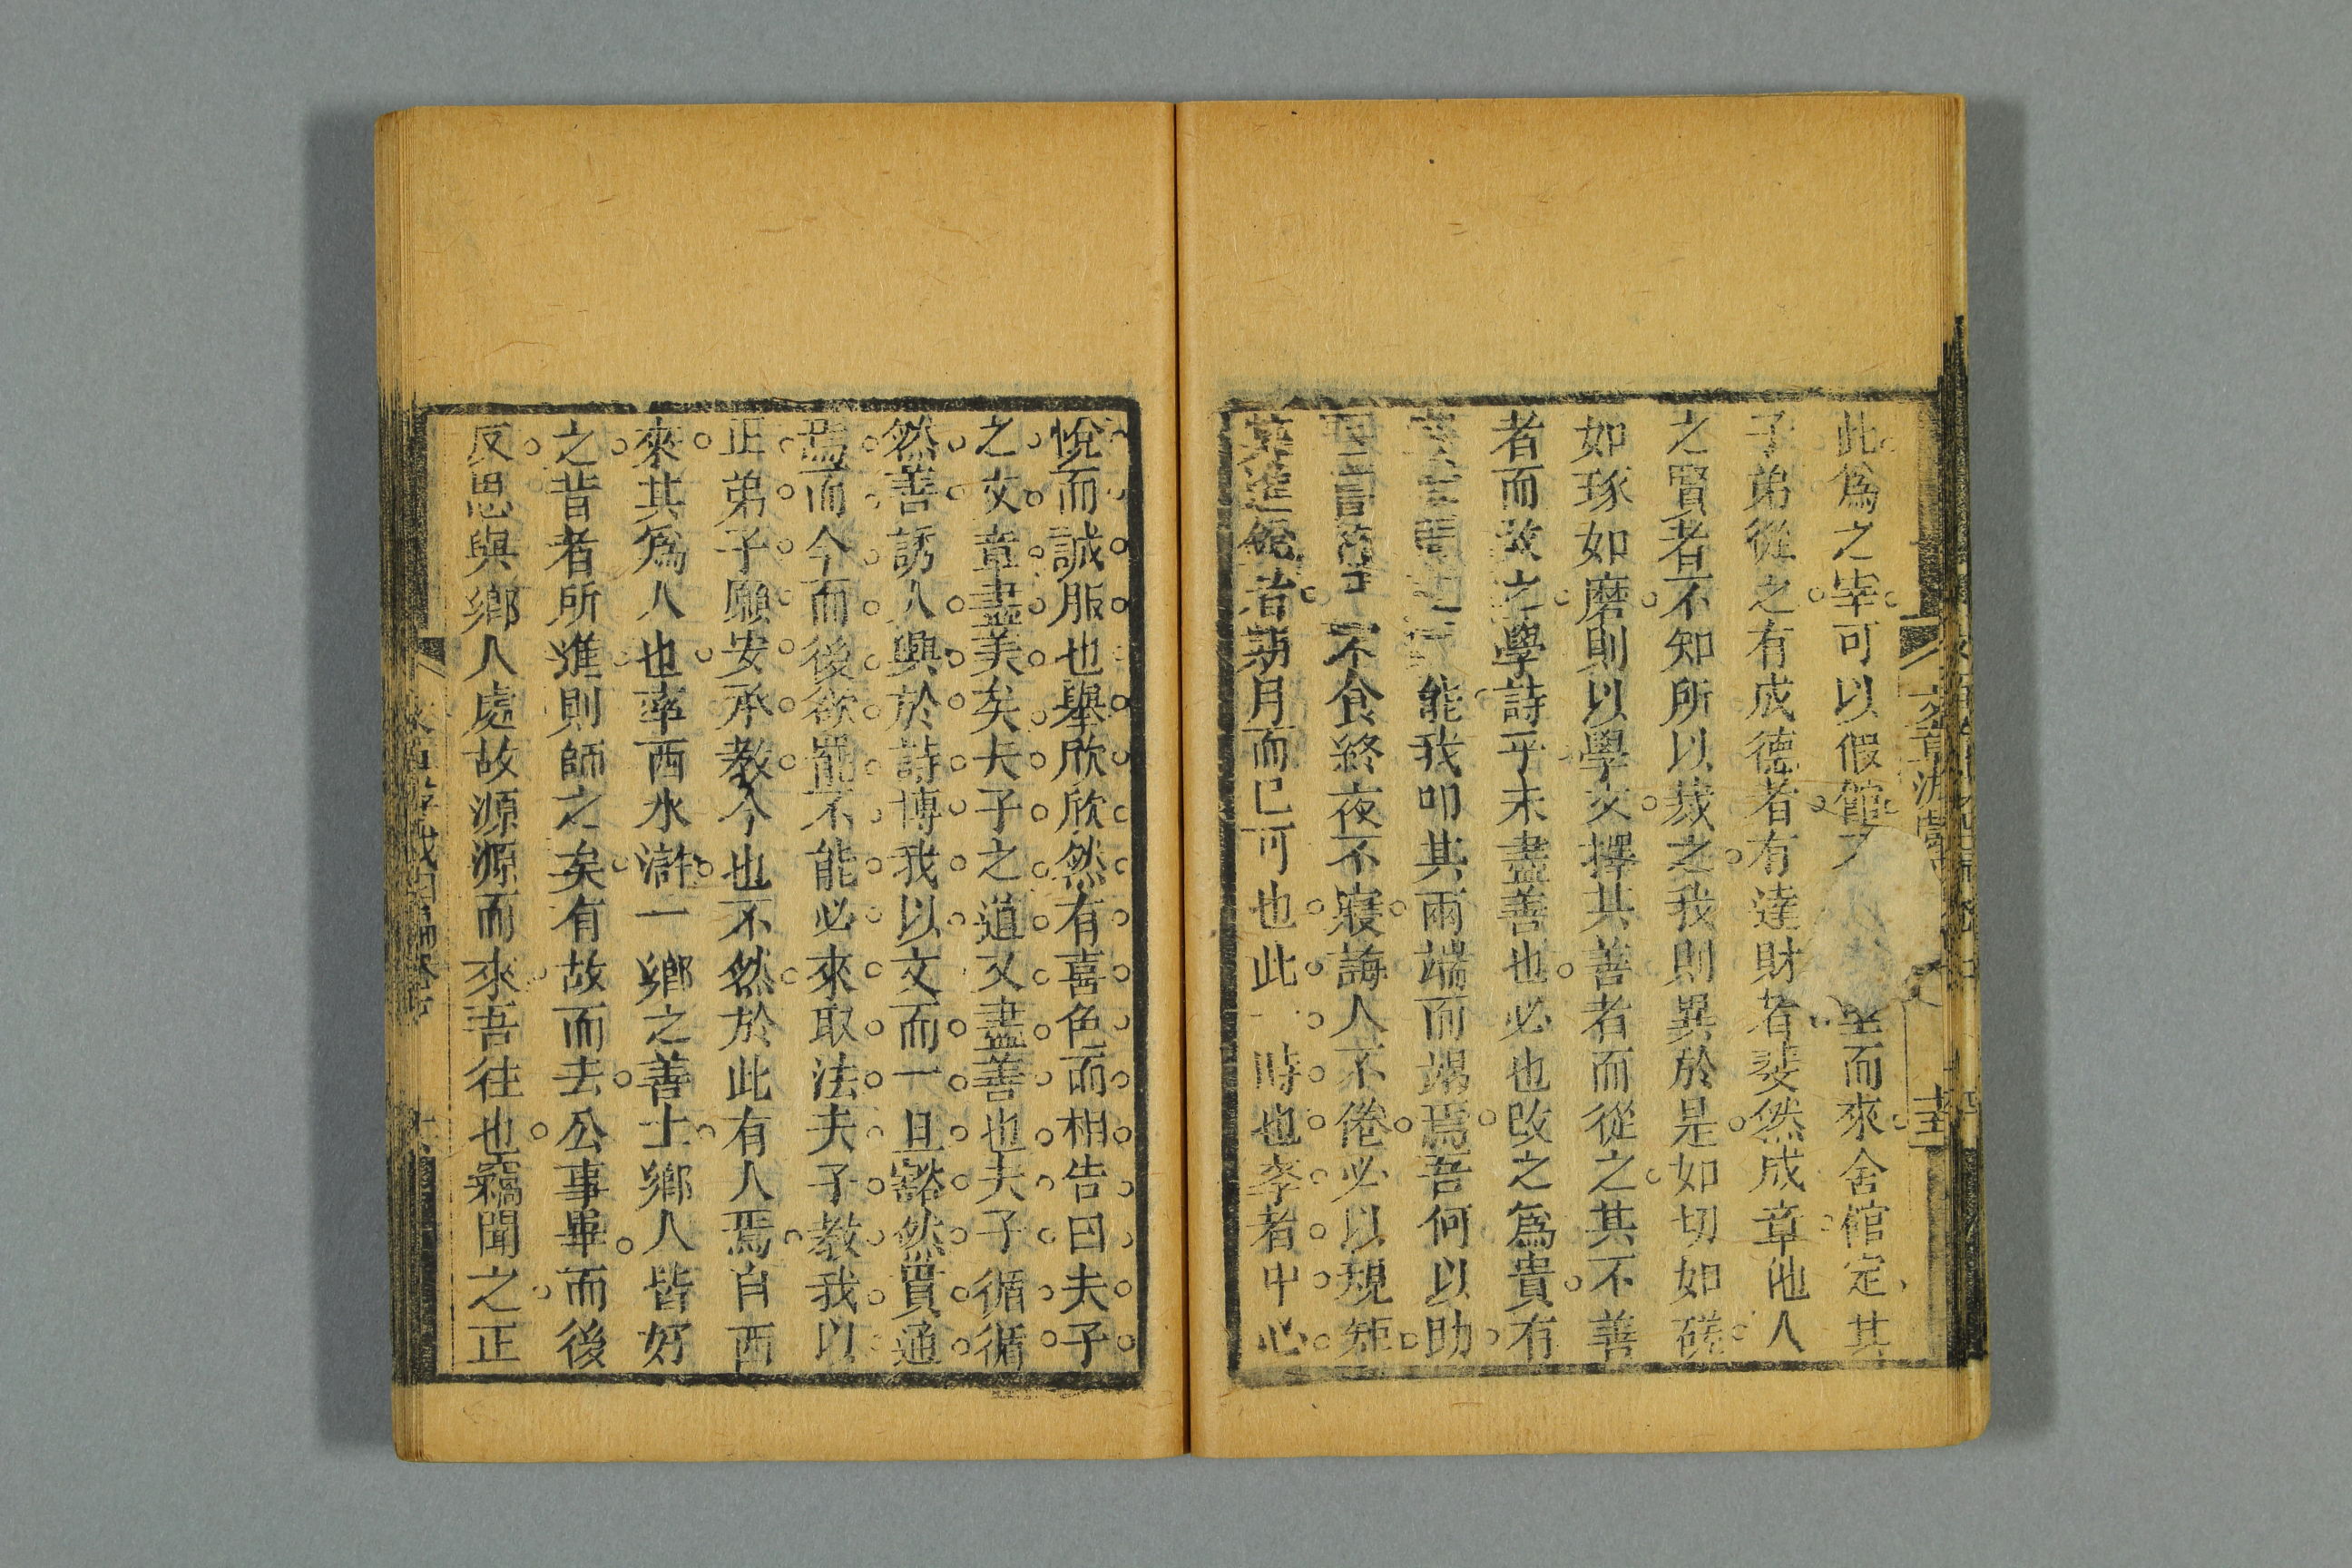 此爲之宰可以假館
而來舍館定其
子弟從之有成德者有達財者斐然成章他人
之賢者不知所以裁之我則異於是如切如磋
如琢如磨則以學文擇其善者而從之其不善
者而改之學詩乎未盡善也必也改之爲貴有
能我叩其兩端而竭焉吾何以助
不食終夜不寢誨人不倦必以規矩
者朞月而已可也此一時也孝者中心
悅而誠服也舉欣欣然有喜色而相告曰夫子
之文章盡美矣夫子之道又盡善也夫子循循
然善誘人興於詩博我以文而一旦豁然貫通
焉而今而後欲罷不能必來取法夫子教我以
正弟子願安承教今也不然於此有人焉自西
來其爲人也率西水滸一鄉之善士鄉人皆好
之昔者所進則師之矣有故而去公事畢而後
反思與鄉人處故源源而來吾往也竊聞之正